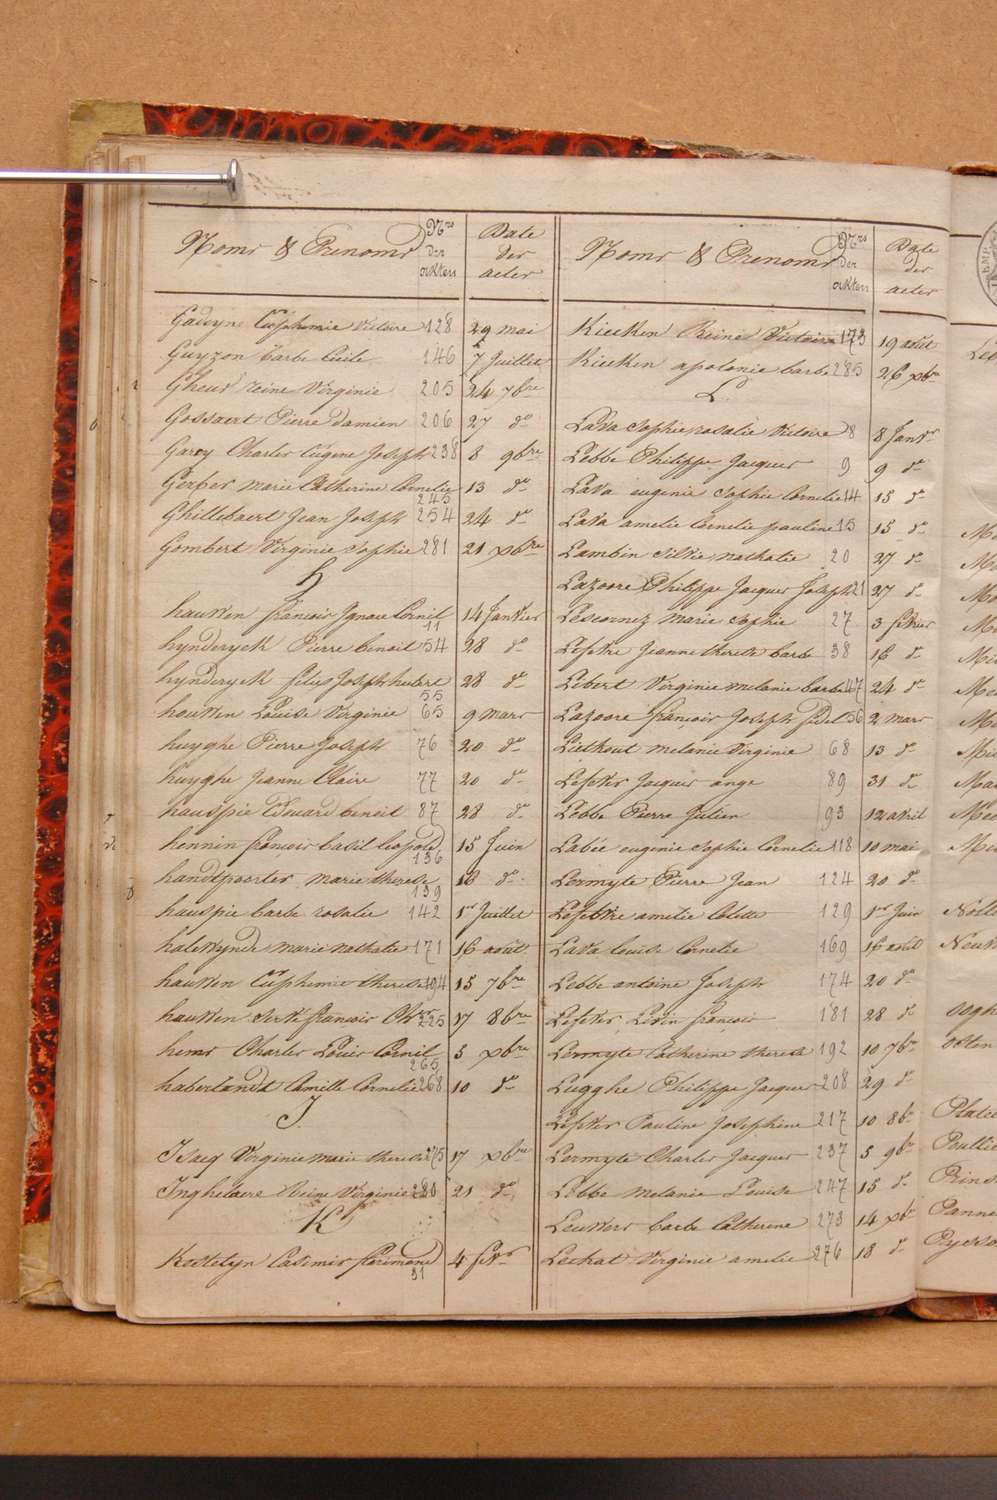 Noms & Prenoms
Nros des actes
Date des actes
Gadeyne Euphemie Victoire 128 29 mai
Guyzon barbe Cecile 146 7 Juillet
Gheus reine Virginie 205 24 7bre
Gossaert Pierre Damien 206 27 do
Garoy Charles Eugene Joseph 238 8 9bre
Gerber marie Catherine Cornelie 245 13 do
Ghillebaert Jean Joseph 254 24 do
Gombert Virginie Sophie 281 21 xbre
H
hauwen francois Ignace Cornil 11 14 Janvier
hynderyck Pierre benoit 54 28 do
hynderyck felix Joseph hubert 55 28 do
houwen Louise Virginie 65 9 mars
huyghe Pierre Joseph 76 20 do
huyghe Jeanne Claire 77 20 do
hauspie Edouard benoit 87 28 do
hennin francois basil leopold 136 15 Juin
handtpoorter marie therese 139 18 do
hauspie barbe rosalie 142 1er Juillet
halewynde marie nathalie 171 16 août
hauwen Euphemie therese 194 15 7bre
hauwen francois 225 17 8bre
hems Charles Louis Cornil 265 3 xbre
haberlandt Camille Cornelie 268 10 do
I
Isaeg Virginie marie therese 275 17 xbre
Inghelaere Reine Virginie 280 21 do
K
Kestelyn Casimir florimond 31 4 fevr
Noms & Prenoms
Nros des actes
Date des actes
Kiecken Reine Victoire 173 19 août
Kiecken apolonie barbe 285 26 xbre
L
Lava Sophie rosalie Victoire 8 8 Janvr
Lebbe Philippe Jacques 9 9 do
Lava eugenie Sophie Cornelie 14 15 do
Lava amelie Cornelie pauline 15 15 do
Lambin Silvie nathalie 20 27 do
Lazoore Philippe Jacques Joseph 21 27 do
Lescornez marie Sophie 27 3 fevrier
Lefever Jeanne therese barbe 38 16 do
Libert Virginie melanie barbe 47 24 do
Lazoore francois Joseph fidel 56 2 mars
Liethout melanie Virginie 68 13 do
Lefever Jacques ange 89 31 do
Lebbe Pierre Julien 93 12 avril
Labée eugenie Sophie Cornelie 118 10 mai
Lermyte Pierre Jean 124 20 do
Lefebvre amelie Colette 129 1er Juin
Lava louise Cornelie 169 16 août
Lebbe antoine Joseph 174 20 do
Lefever Livin francois 181 28 do
Lermyte Catherine therese 192 10 7bre
Lugghe Philippe Jacques 208 29 do
Lefever Pauline Josephine 217 10 8bre
Lermyte Charles Jacques 237 5 9bre
Lebbe Melanie Louise 247 15 do
Leuwers barbe Catherine 273 14 xbre
Lechat Virginie amelie 276 18 do